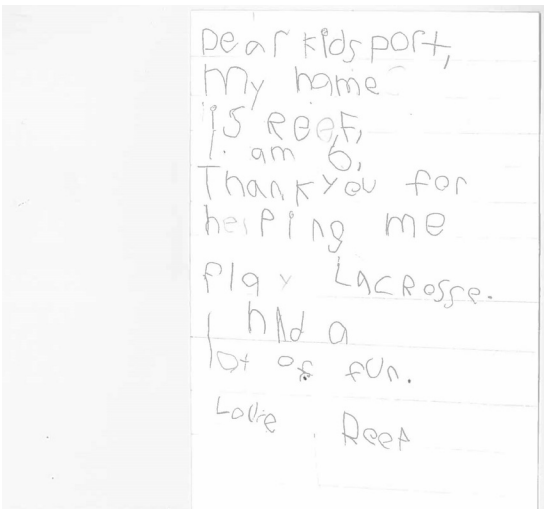 Dear kidsport,
My name
is REEF,
I. am 6,
Thankyou for
helping me
play LACROSSE.
I hAd a
lot of fun.
Love Reef